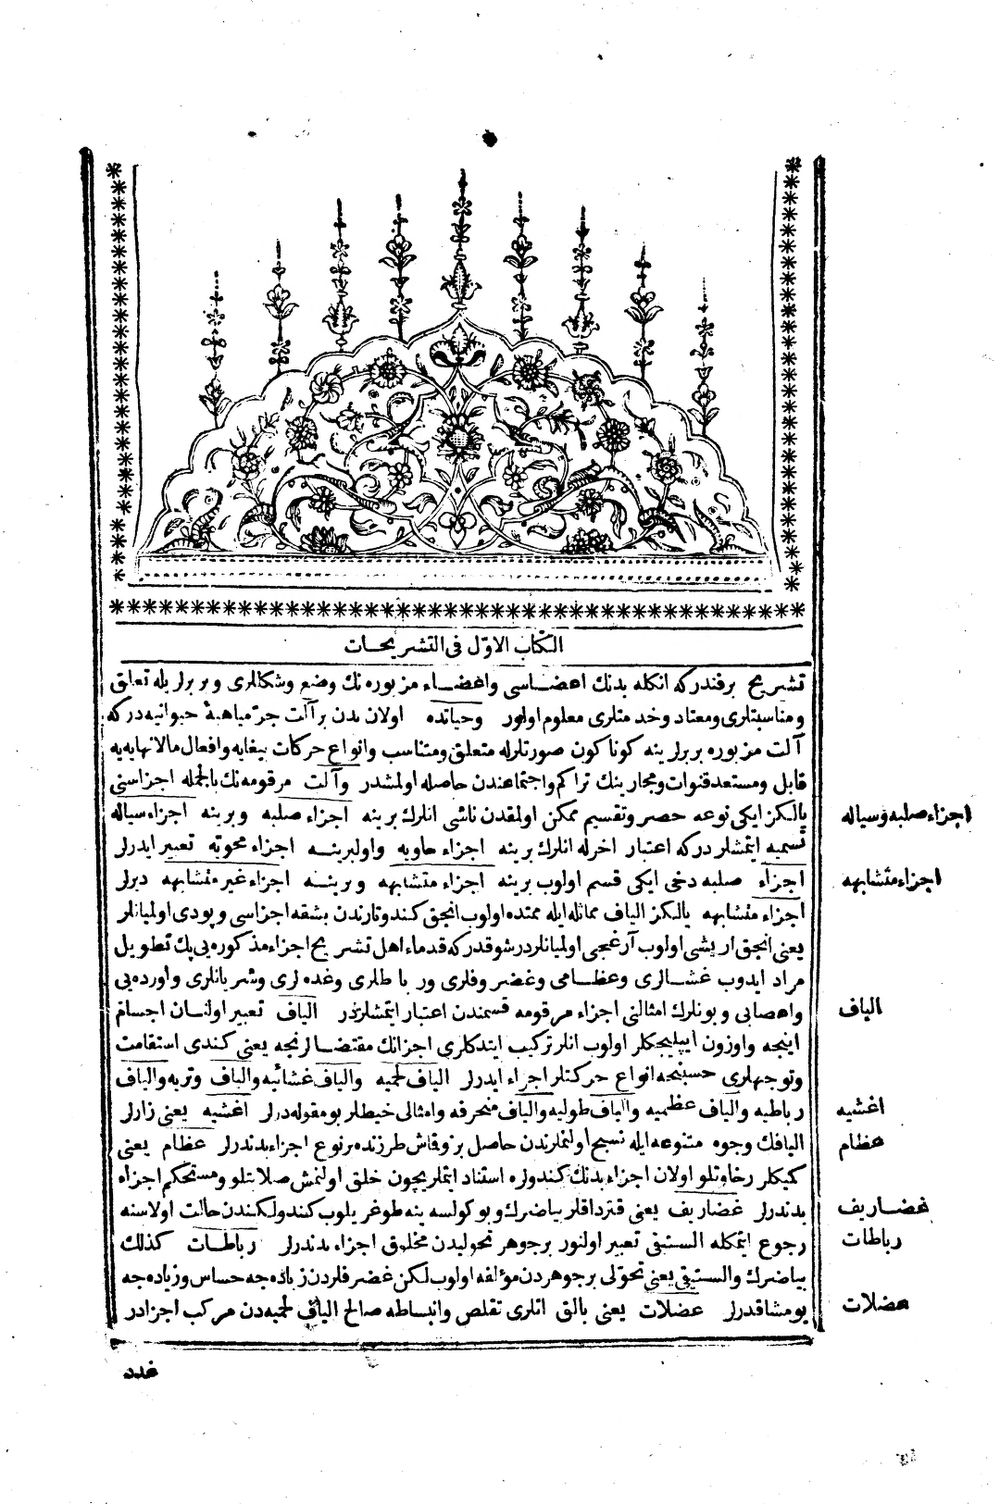 الكتاب الاوّل فى التشريحات
تشريح برفندركه انكله بدنك اعضاسى واعضاء مزبوره نك وضع وشكللرى وبربرايله تعلق
ومناسبتلرى ومعتاد وخدمتلرى معلوم اولور وحياتده اولان بدن برآلت جرّ مياهيهٔ حيوانيه دركه
آلت مزبوره بربرلرينه كوناكون صورتلرله متعلق ومتناسب وانواع حركات بيغايه وافعال مالانهايه يه
قابل ومستعد قنوات ومجارينك تراكم واجتماعندن حاصله اولمشدر وآلت مرقومه نك بالجمله اجزاسنى
يالكز ايكى نوعه حصر وتقسيم ممكن اولمقدن ناشى انلرك برينه اجزاء صلبه وبرينه اجزاء سياله
تسميه ايتمشلردركه اعتبار اخرله انلرك برينه اجزاء حاويه واولبرينه اجزاء محويّه تعبير ايدرلر
اجزاء صلبه دخى ايكى قسم اولوب برينه اجزاء متشابهه وبرينه اجزاء غير متشابهه ديرلر
اجزاء متشابهه يالكز الياف مماثله ايله ممتده اولوب انجق كندو تارندن بشقه اجزاسى وپودى اولميانلر
يعنى انجق اريشى اولوب آرغجى اولميانلردر شوقدركه قدماء اهل تشريح اجزاء مذكوره يى پك تطويل
مراد ايدوب غشالرى وعظامى وغضروفلرى ورباطلرى وغده لرى وشريانلرى واورده يى
واعصابى وبونلرك امثالنى اجزاء مرقومه قسمندن اعتبار ايتمشلردر الياف تعبير اولنان اجسام
اينجه واوزون ايپليجكلر اولوب انلر تركيب ايتدكلرى اجزانك مقتضالرنجه يعنى كندى استقامت
وتوجهلرى حسبنجه انواع حركتلر اجراء ايدرلر الياف لحميه والياف غشائيه والياف وتريه والياف
رباطيه والياف عظميه والياف طوليه والياف منحرفه وامثالى خيطلر بومقوله درلر اغشيه يعنى زارلر
اليافك وجوه متنوعه ايله نسيج اولنملرندن حاصل بز وقاش طرزنده برنوع اجزاء بدندرلر عظام يعنى
كيكلر رخاوتلو اولان اجزاء بدنك كندولره استناد ايتملريچون خلق اولنمش صلابتلو ومستحكم اجزاء
بدندرلر غضاريف يعنى قترداقلر بياضرك وبوكولسه ينه طوغريلوب كندولكندن حالت اولاسنه
رجوع ايتمكله السنبقى تعبير اولنور برجوهر نحوليدن مخلوق اجزاء بدندرلر رباطات كذلك
بياضرك والسنبقى يعنى تحوّلى برجوهردن مؤلفه اولوب لكن غضرفلردن زياده جه حساس وزياده جه
يومشاقدرلر عضلات يعنى بالق اتلرى تقلص وانبساطه صالح الياف لحميه دن مركب اجزادر
غدد
اجزاء صلبه وسياله
اجزاء متشابهه
الياف
اغشيه
عظام
غضاريف
رباطات
عضلات